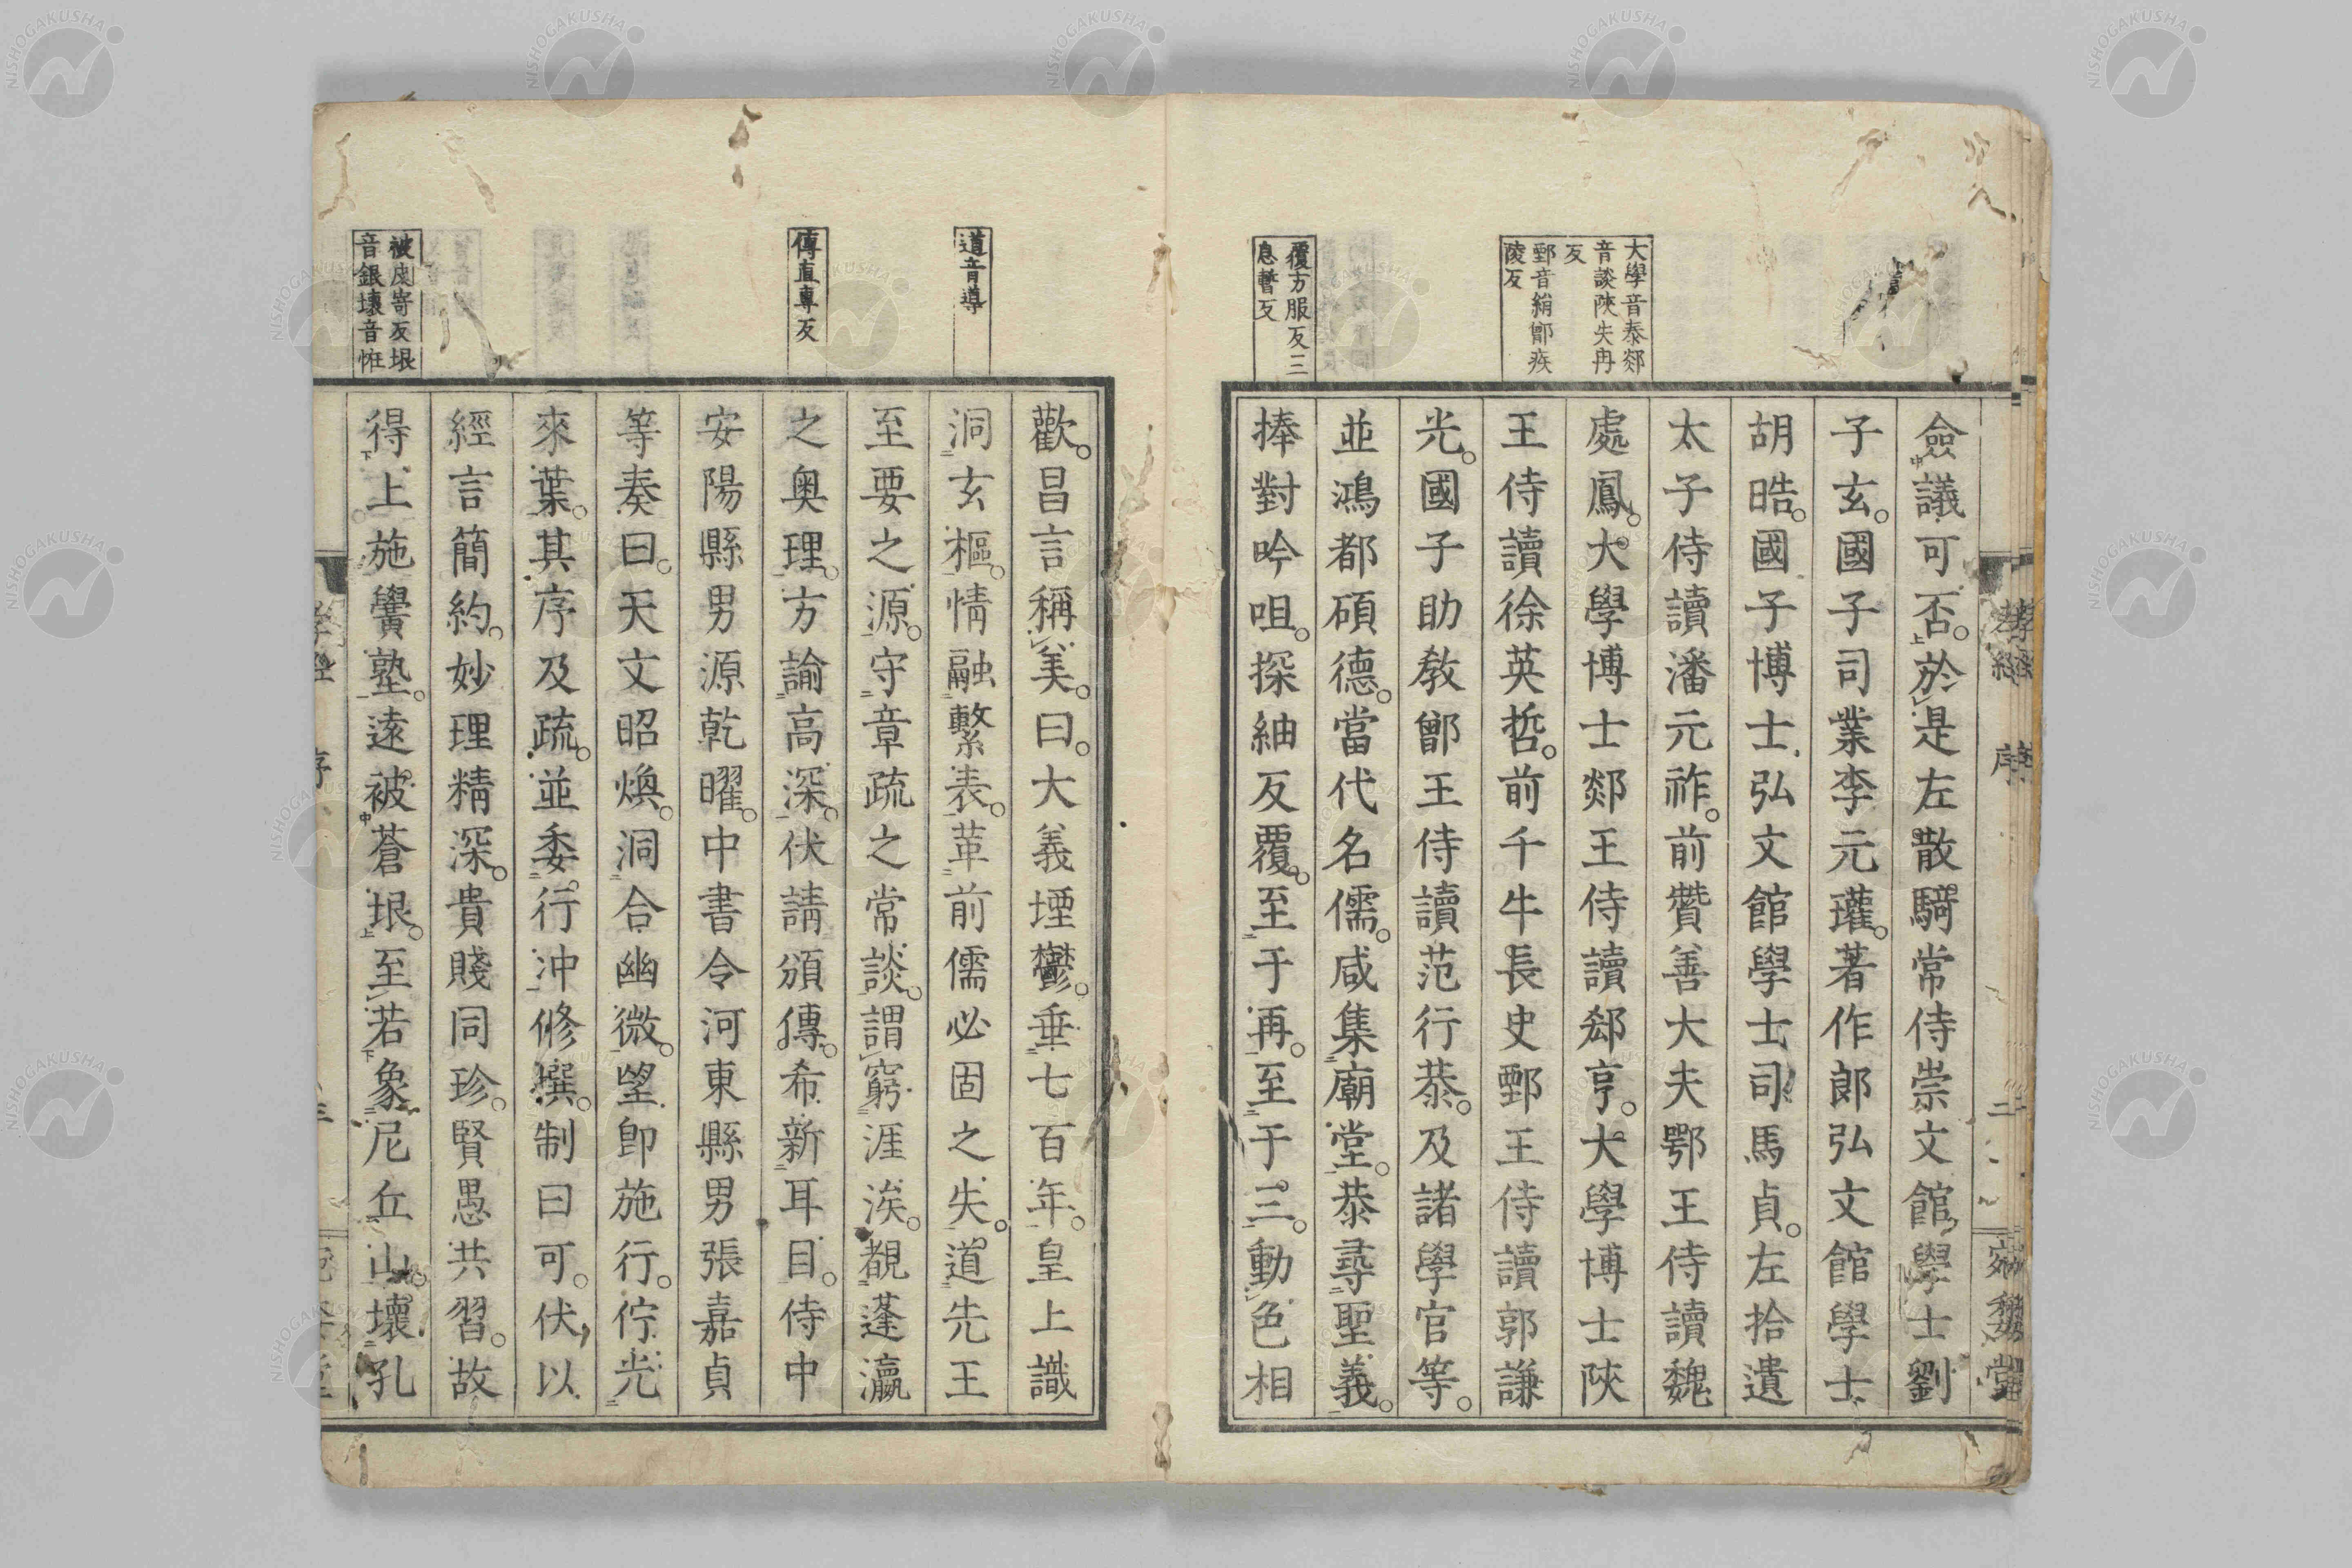 大學音泰郯
音談陝失冉
反
鄄音絹鄫疾
陵反
覆方服反三
息暫反
僉議可否於是左散騎常侍崇文館學士劉
子玄國子司業李元瓘著作郎弘文館學士
胡晧國子博士弘文館學士司馬貞左拾遺
太子侍讀潘元祚前贊善大夫鄂王侍讀魏
處鳳大學博士郯王侍讀郄亨大學博士陝
王侍讀徐英哲前千牛長史鄄王侍讀郭謙
光國子助教鄫王侍讀范行恭及諸學官等
並鴻都碩德當代名儒咸集廟堂恭尋聖義
捧對吟咀探紬反覆至于再至于三動色相
孝經
序
二
窮婺堂
道音導
傳直專反
被皮寄反垠
音銀壞音恠
歡昌言稱美曰大義堙鬱垂七百年皇上識
洞玄樞情融繫表革前儒必固之失道先王
至要之源守章疏之常談謂窮涯涘覩蓬瀛
之奧理方諭高深伏請頒傳希新耳目侍中
安陽縣男源乾曜中書令河東縣男張嘉貞
等奏曰天文昭煥洞合幽微望卽施行佇光
來葉其序及疏並委行冲修撰制曰可伏以
經言簡約妙理精深貴賤同珍賢愚共習故
得上施黌塾遠被蒼垠至若象尼丘山壞孔